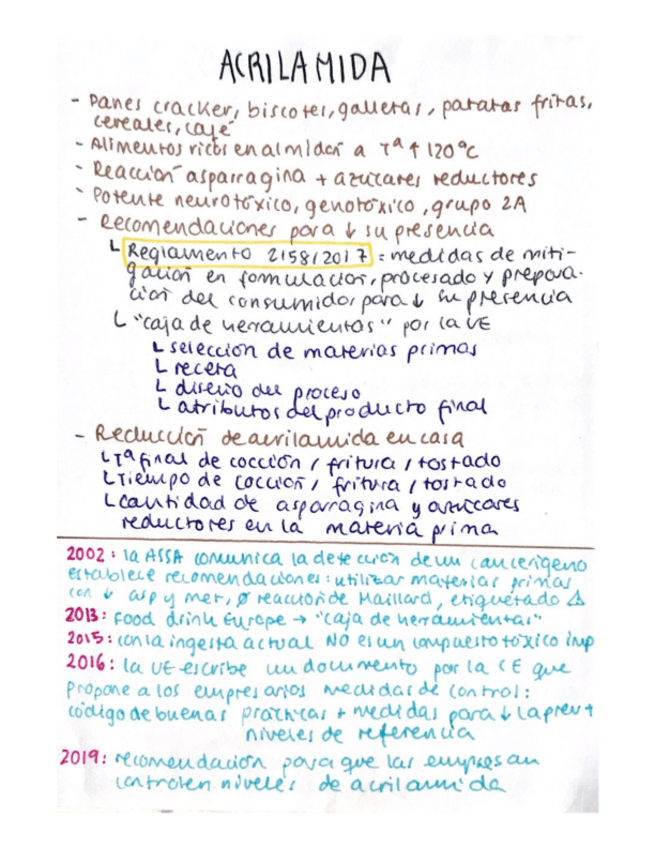 ACRILAMIDA
- Panes cracker, biscotes, galletas, patatas fritas,
cereales, café
- Alimentos ricos en almidón a Tª ↑ 120ºC
- Reacción asparragina + azúcares reductores
- Potente neurotóxico, genotóxico, grupo 2A
- Recomendaciones para ↓ su presencia
↳ Reglamento 2158/2017 = medidas de miti-
gación en formulación, procesado y prepara-
ción del consumidor para ↓ su presencia
↳ "caja de herramientas" por la UE
↳ selección de materias primas
↳ receta
↳ diseño del proceso
↳ atributos del producto final
- Reducción de acrilamida en casa
↳ Tª final de cocción / fritura / tostado
↳ Tiempo de cocción / fritura / tostado
↳ cantidad de asparragina y azúcares
reductores en la materia prima
2002: la ASSA comunica la detección de un cancerígeno
establece recomendaciones: utilizar materias primas
con ↓ asp y mer, Ø reacción de Maillard, etiquetado ⚠
2013: Food drink Europe → "caja de herramientas"
2015: con la ingesta actual NO es un compuesto tóxico imp
2016: la UE escribe un documento por la CE que
propone a los empresarios medidas de control:
código de buenas prácticas + medidas para ↓ la prev +
niveles de referencia
2019: recomendación para que las empresan
controlen niveles de acrilamida